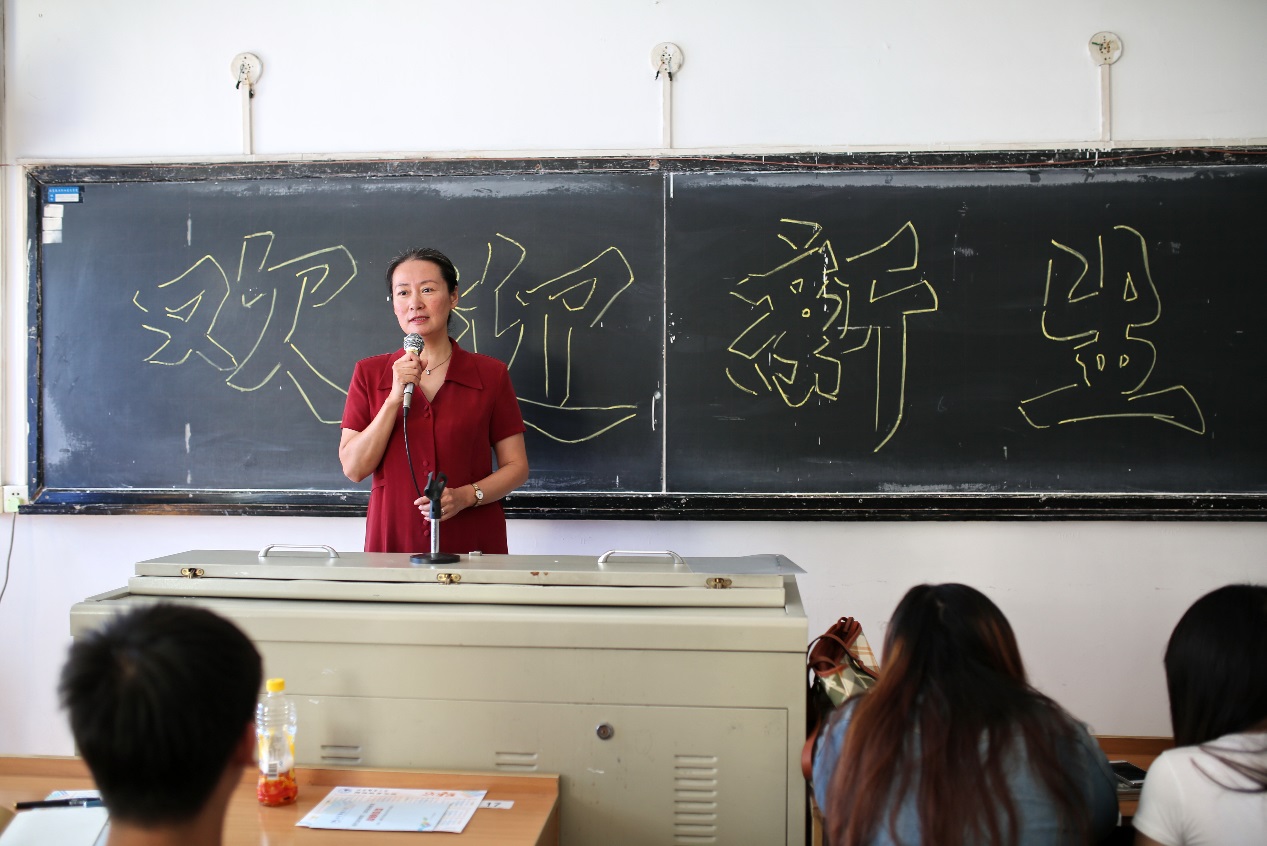 欢迎新生
17